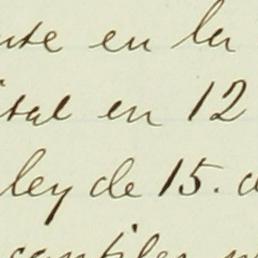 nte en la
ital en 12
ley de 15. d